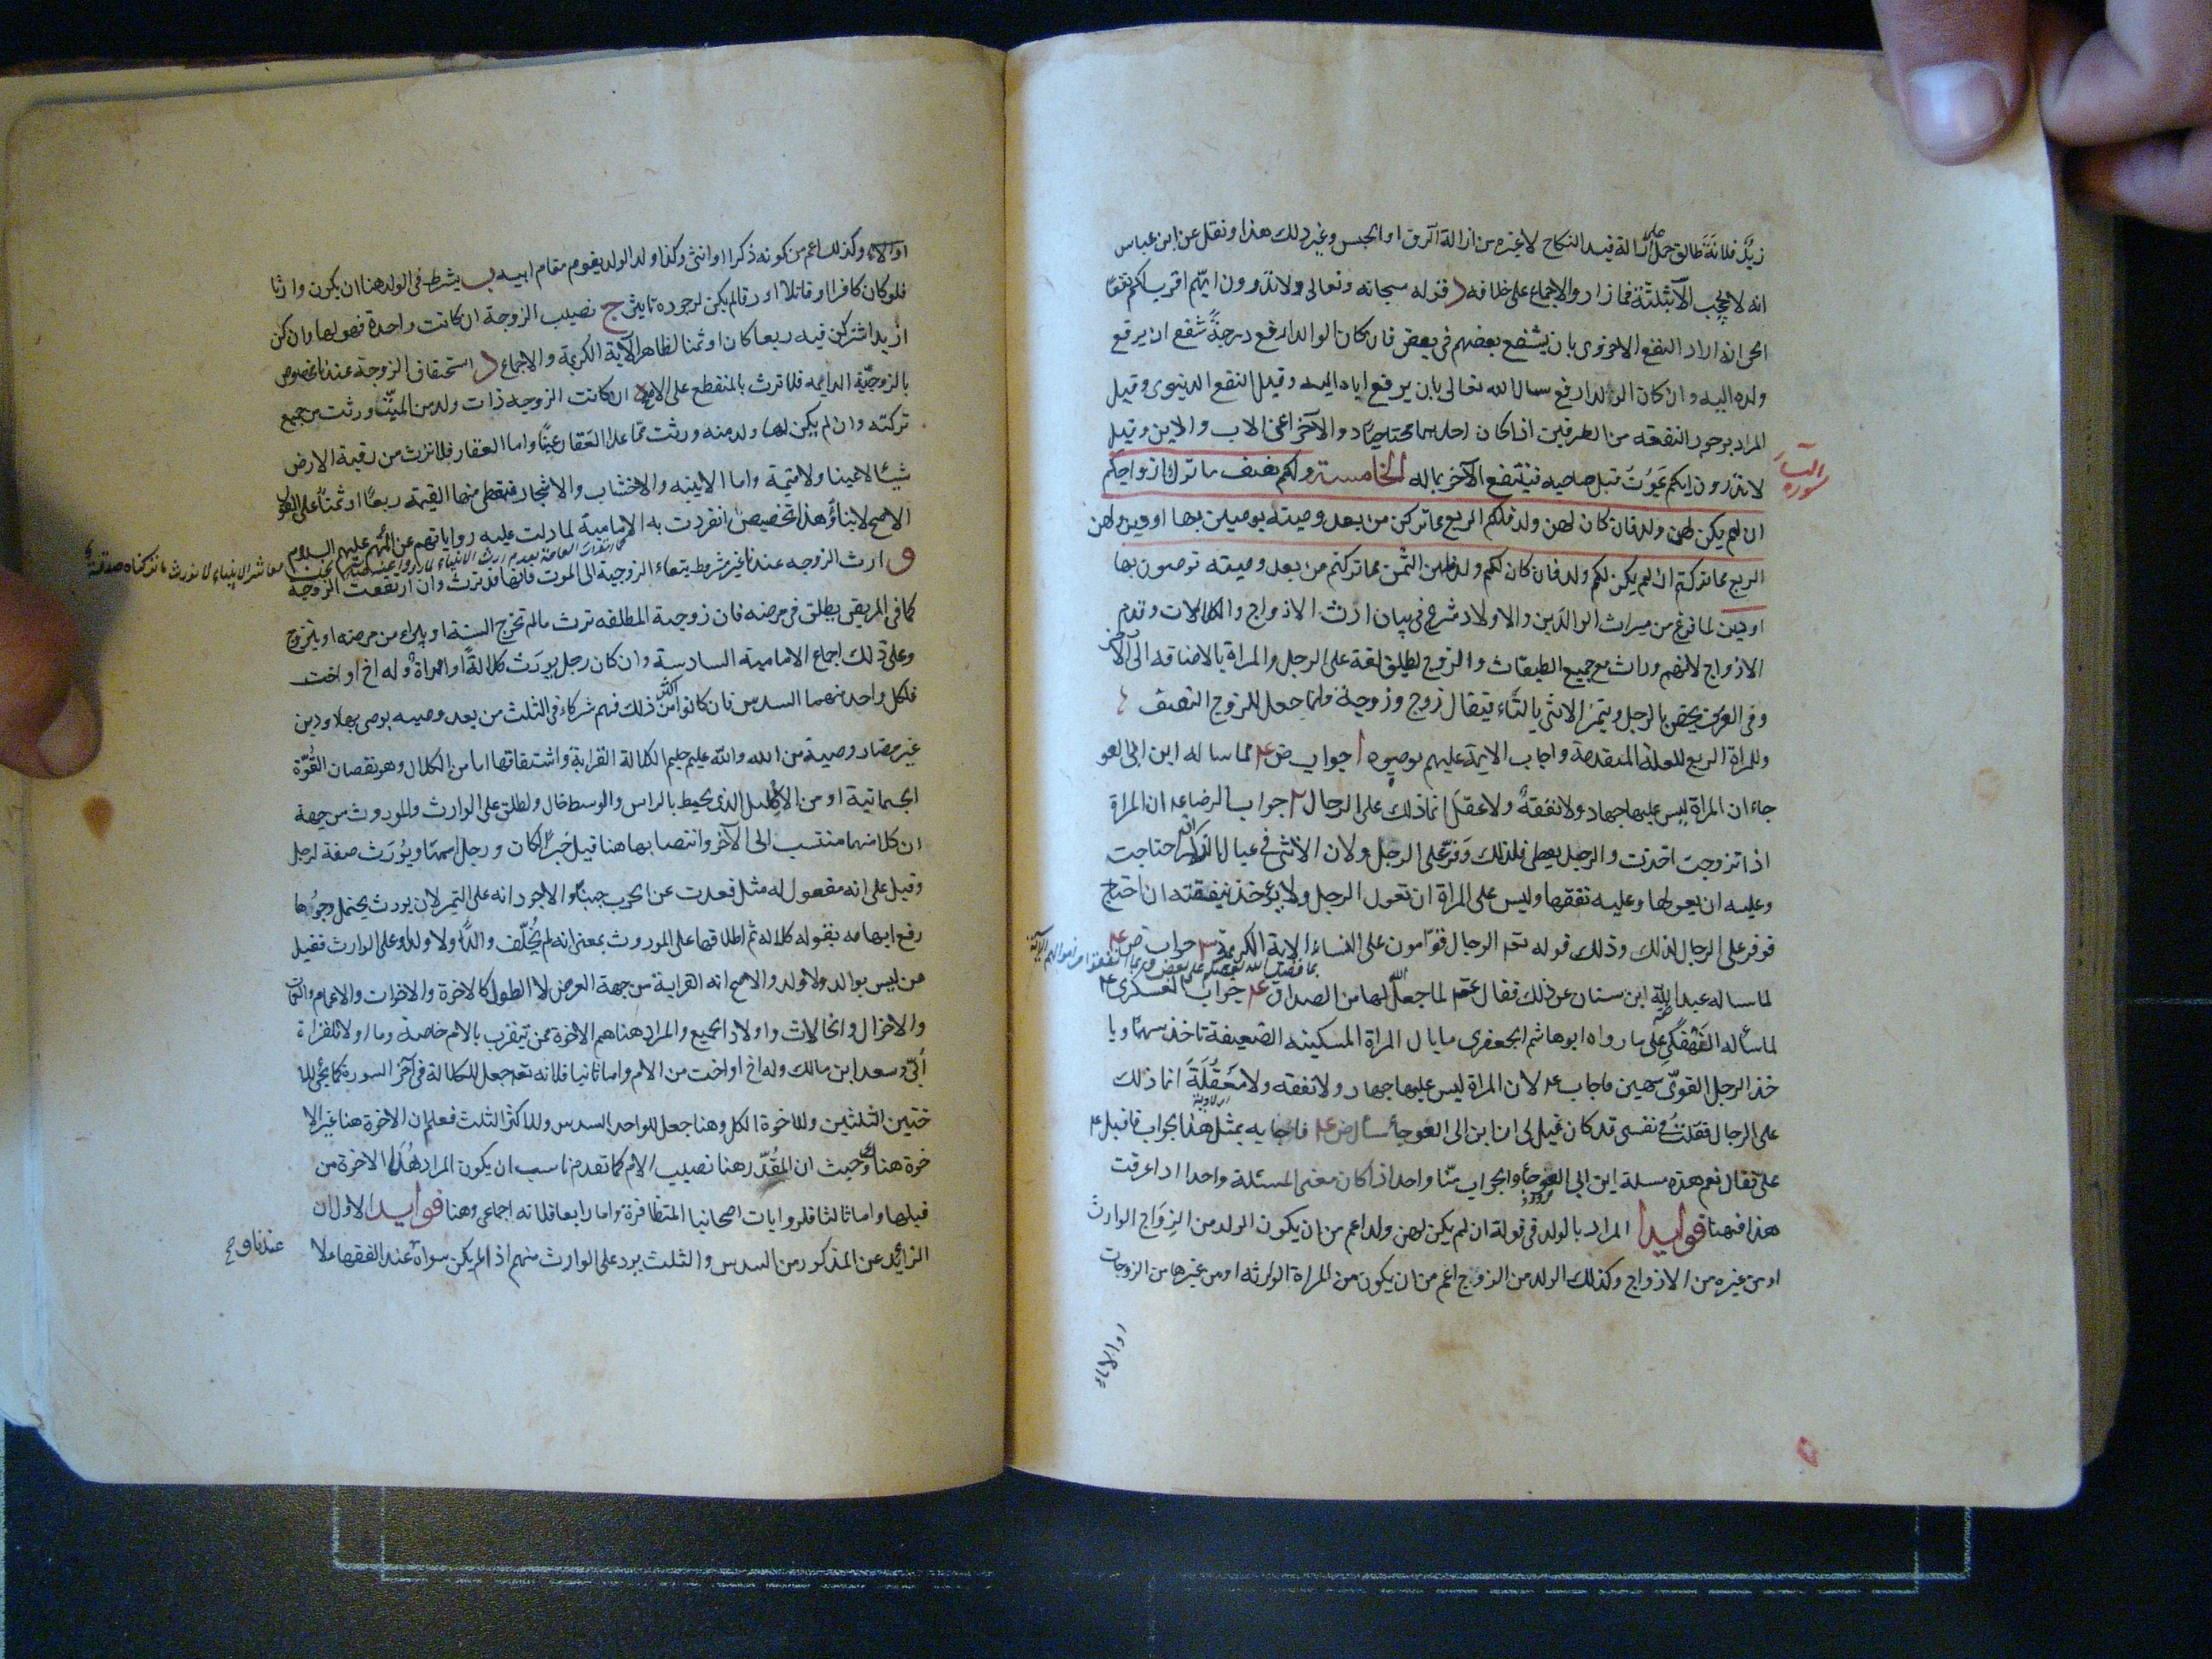 زيد فلانة طالق حمل على ازالة قيد النكاح لا غيره من ازالة الرق او الحبس وغير ذلك هذا ونقل عن ابن عباس
انه لا يحجب الا بثلثة فما زاد والاجماع على خلافه د قوله سبحانه وتعالى ولا تدرون ايهم اقرب لكم نفعا
اراد النفع الاخروى بان يشفع بعضهم فى بعض فان كان الوالد ارفع درجة شفع ان يرفع
ولده اليه وان كان الولد ارفع سال الله تعالى بان يرفع اباه اليه وقيل النفع الدنيوى وقيل
المراد بوجوب النفقة من الطرفين اذا كان احدهما محتاجا والآخر اعنى الاب والابن وقيل
سورة النساء
لا تدرون ايكم يموت قبل صاحبه فينتفع الآخر بماله الخامسة ولكم نصف ما ترك ازواجكم
ان لم يكن لهن ولد فان كان لهن ولد فلكم الربع مما تركن من بعد وصية يوصين بها او دين ولهن
الربع مما تركتم ان لم يكن لكم ولد فان كان لكم ولد فلهن الثمن مما تركتم من بعد وصية توصون بها
او دين لما فرغ من ميراث الوالدين والاولاد شرع فى بيان ارث الازواج والكلالات وقدم
الازواج لانهم وراث مع جميع الطبقات والزوج يطلق لغة على الرجل والمراة بالاضافة الى الآخر
وفى العرف يختص بالرجل ويتميز الانثى بالتاء فيقال زوج وزوجة وانما جعل للزوج النصف
وللمراة الربع للعلة المتقدمة واجاب الايمة عليهم بوجوه ا جواب ص ع لما ساله ابن ابى العو
جاء ان المراة ليس عليها جهاد ولا نفقة ولا عقل انما ذلك على الرجال ٢ جواب الرضا ع ان المراة
اذا تزوجت اخذت والرجل يعطى فلذلك وفر على الرجل ولان الانثى فى عيال الذكر ان احتاجت
وعليه ان يعولها وعليه نفقتها وليس على المراة ان تعول الرجل ولا يؤخذ بنفقته ان احتاج
فوفر على الرجال لذلك وذلك قوله تعه الرجال قوامون على النساء الاية الكريمة ٣ جواب ص ع
بما فضل الله بعضهم على بعض وبما انفقوا من اموالهم الآية
لما ساله عبد الله ابن سنان عن ذلك فقال لما جعل الله لها من الصداق ع جواب العسكرى ع
لما سأله الفهفكى على ما رواه ابو هاشم الجعفرى ما بال المراة المسكينة الضعيفة تاخذ سهما ويا
خذ الرجل القوى سهمين فاجاب ع لان المراة ليس عليها جهاد ولا نفقة ولا معقلة انما ذلك
على الرجال فقلت فى نفسى قد كان قيل لى ان ابن ابى العوجا سأل ص ع فاجابه بمثل هذا الجواب فاقبل ع
على فقال نعم هذه مسلة ابن ابى العوجا والجواب منا واحد اذا كان معنى المسئلة واحدا اذا عرفت
هذا فهنا فوايد ا المراد بالولد فى قوله ان لم يكن لهن ولد اعم من ان يكون الولد من الزواج الوارث
او من غيره من الازواج وكذلك الولد من الزوج اعم من ان يكون من المراة الوارثة او من غيرها من الزوجات
او الاماء
او الاماء وكذلك اعم من كونه ذكرا او انثى وكذا ولد الولد يقوم مقام ابيه ب يشترط فى الولد هنا ان يكون وارثا
فلو كان كافرا او قاتلا او رقا لم يكن لوجوده تاثير ج نصيب الزوجة ان كانت واحدة فهو لها وان كن
ازيد اشتركن فيه ربعا كان او ثمنا لظاهر الآية الكريمة والاجماع د استحقاق الزوجة عندنا مخصوص
بالزوجية الدايمه فلا ترث بالمنقطع على الاصح ه ان كانت الزوجه ذات ولد من الميت ورثت من جميع
تركته وان لم يكن لها ولد منه ورثت مما عدا العقار عينا واما العقار فلا ترث من رقبة الارض
شيئا لا عينا ولا قيمة واما الابنيه والاخشاب والاشجار فتعطى منها القيمة ربعا او ثمنا على القول
الاصح لابناؤ هذا تخصيص انفردت به الامامية لما دلت عليه رواياتهم عن ائمتهم عليهم السلام
كما تفردت العامة بعدم ارث الانبياء لما رووا عنه صلى نحن معاشر الانبياء لا نورث ما تركناه صدقة
و ارث الزوجه عندنا غير مشروط ببقاء الزوجية الى الموت فانها قد ترث وان ارتفعت الزوجة
كما فى المريض يطلق فى مرضه فان زوجة المطلقه ترث ما لم تخرج السنة او يبراء من مرضه او يتزوج
وعلى ذلك اجماع الامامية السادسة وان كان رجل يورث كلالة او امراة وله اخ او اخت
فلكل واحد منهما السدس فان كانوا اكثر من ذلك فهم شركاء فى الثلث من بعد وصيه يوصى بها او دين
غير مضار وصية من الله والله عليم حليم الكلالة القرابة واشتقاقها اما من الكلال وهو نقصان القوة
الجسمانية او من الاكليل الذى يحيط بالراس والوسط خال ويطلق على الوارث والمورث من جهة
ان كلا منهما منتسب الى الآخر وانتصابها هنا قيل خبرا لكان ورجل اسمها ويورث صفة لرجل
وقيل على انه مفعول له مثل قعدت عن الحرب جبنا والاجود انه على التميز لان يورث يحتمل وجوها
رفع ابهامه بقوله كلاله ثم اطلاقها على المورث بمعنى انه لم يخلف والدا ولا ولدا وعلى الوارث فقيل
من ليس بوالد ولا ولد والاصح انه القرابة من جهة العرض لا الطول كالاخوة والاخوات والاعمام والعمات
والاخوال والخالات واولاد الجميع والمراد هنا هم الاخوة ممن يتقرب بالام خاصة وما اولا لقراءة
أبى وسعد ابن مالك وله اخ او اخت من الام واما ثانيا فلانه تعه جعل للكلالة فى آخر السورة كما يجئ للا
ختين الثلثين وللاخوة الكل وهنا جعل للواحد السدس وللاكثر الثلث فعلم ان الاخوة هنا غير الا
خوة هناك وحيث ان المقدر هنا نصيب الام كما تقدم ناسب ان يكون المراد هنا الاخوة من
قبلها واما ثالثا فلروايات اصحابنا المتظافرة واما رابعا فلانه اجماعى وهنا فوايد الاول ان
الزائد عن المذكور من السدس والثلث يرد على الوارث منهم اذا لم يكن سواه عند الفقهاء لا
عندنا وصح